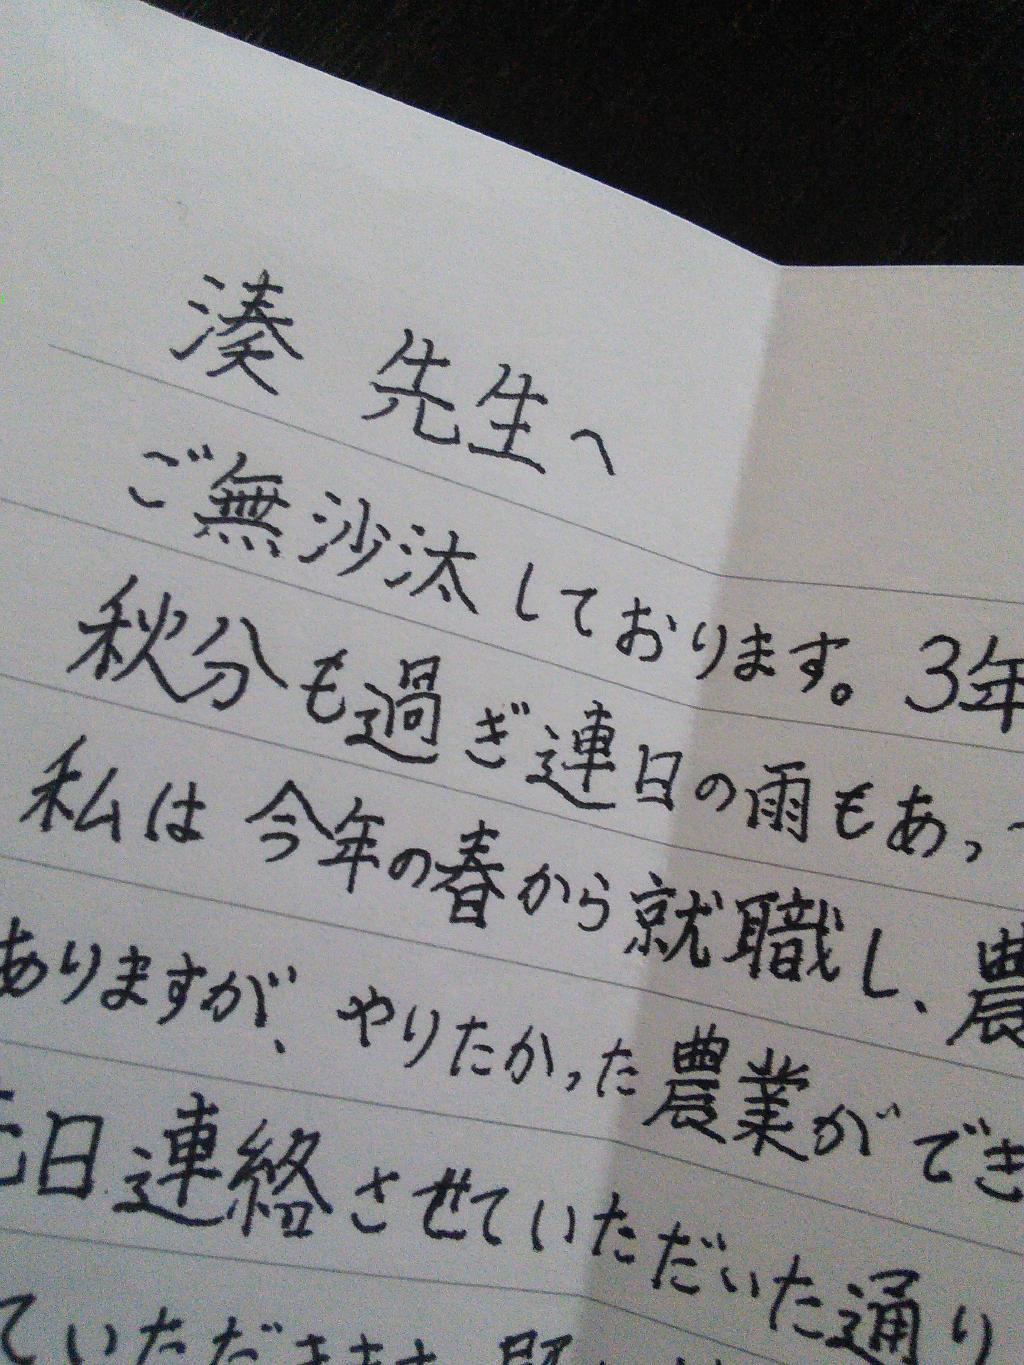 湊 先生へ
ご無沙汰しております。3年
秋分も過ぎ連日の雨もあっ
私は今年の春から就職し、農
ありますが、やりたかった農業ができ
先日連絡させていただいた通り
ていただきます